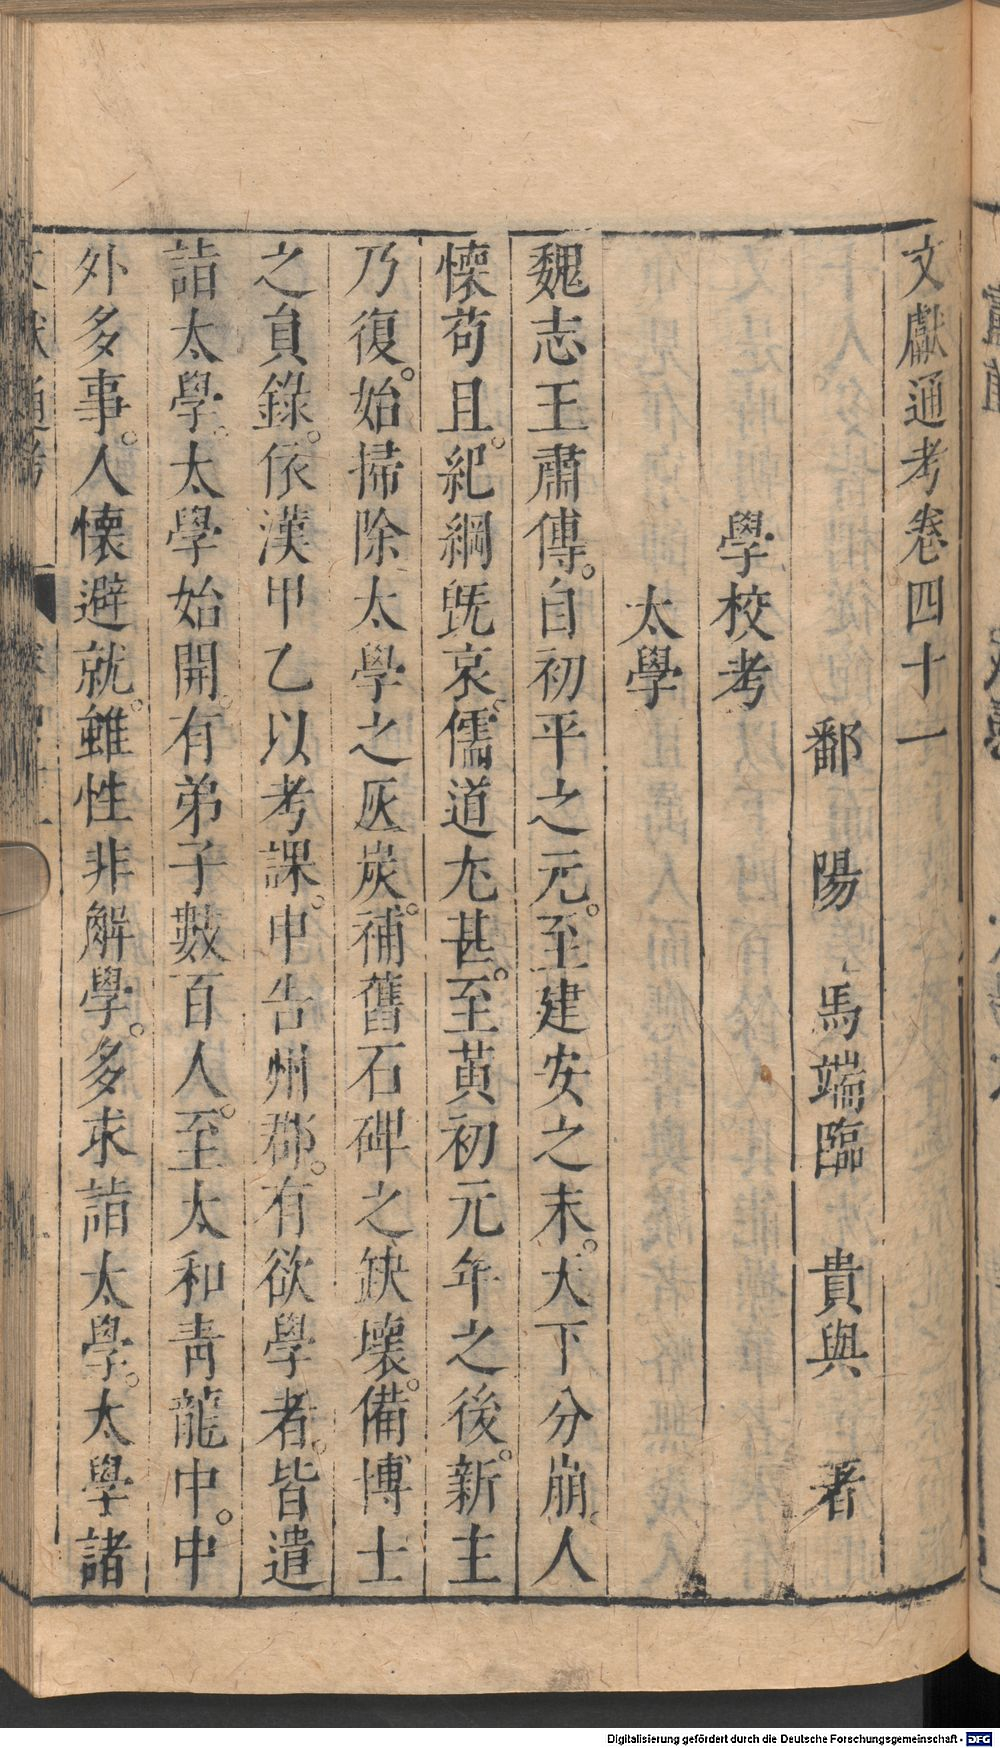 文獻通考卷四十一
鄱陽馬端臨貴與著
學校考
太學
魏志王肅傳。自初平之元。至建安之末。天下分崩。人
懷苟且。紀綱旣衰。儒道尤甚。至黃初元年之後。新主
乃復。始掃除太學之灰炭。補舊石碑之缺壞。備博士
之員錄。依漢甲乙以考課。申告州郡。有欲學者。皆遣
詣太學。太學始開。有弟子數百人。至太和青龍中。中
外多事。人懷避就。雖性非解學。多求詣太學。太學諸
Digitalisierung gefördert durch die Deutsche Forschungsgemeinschaft - DFG